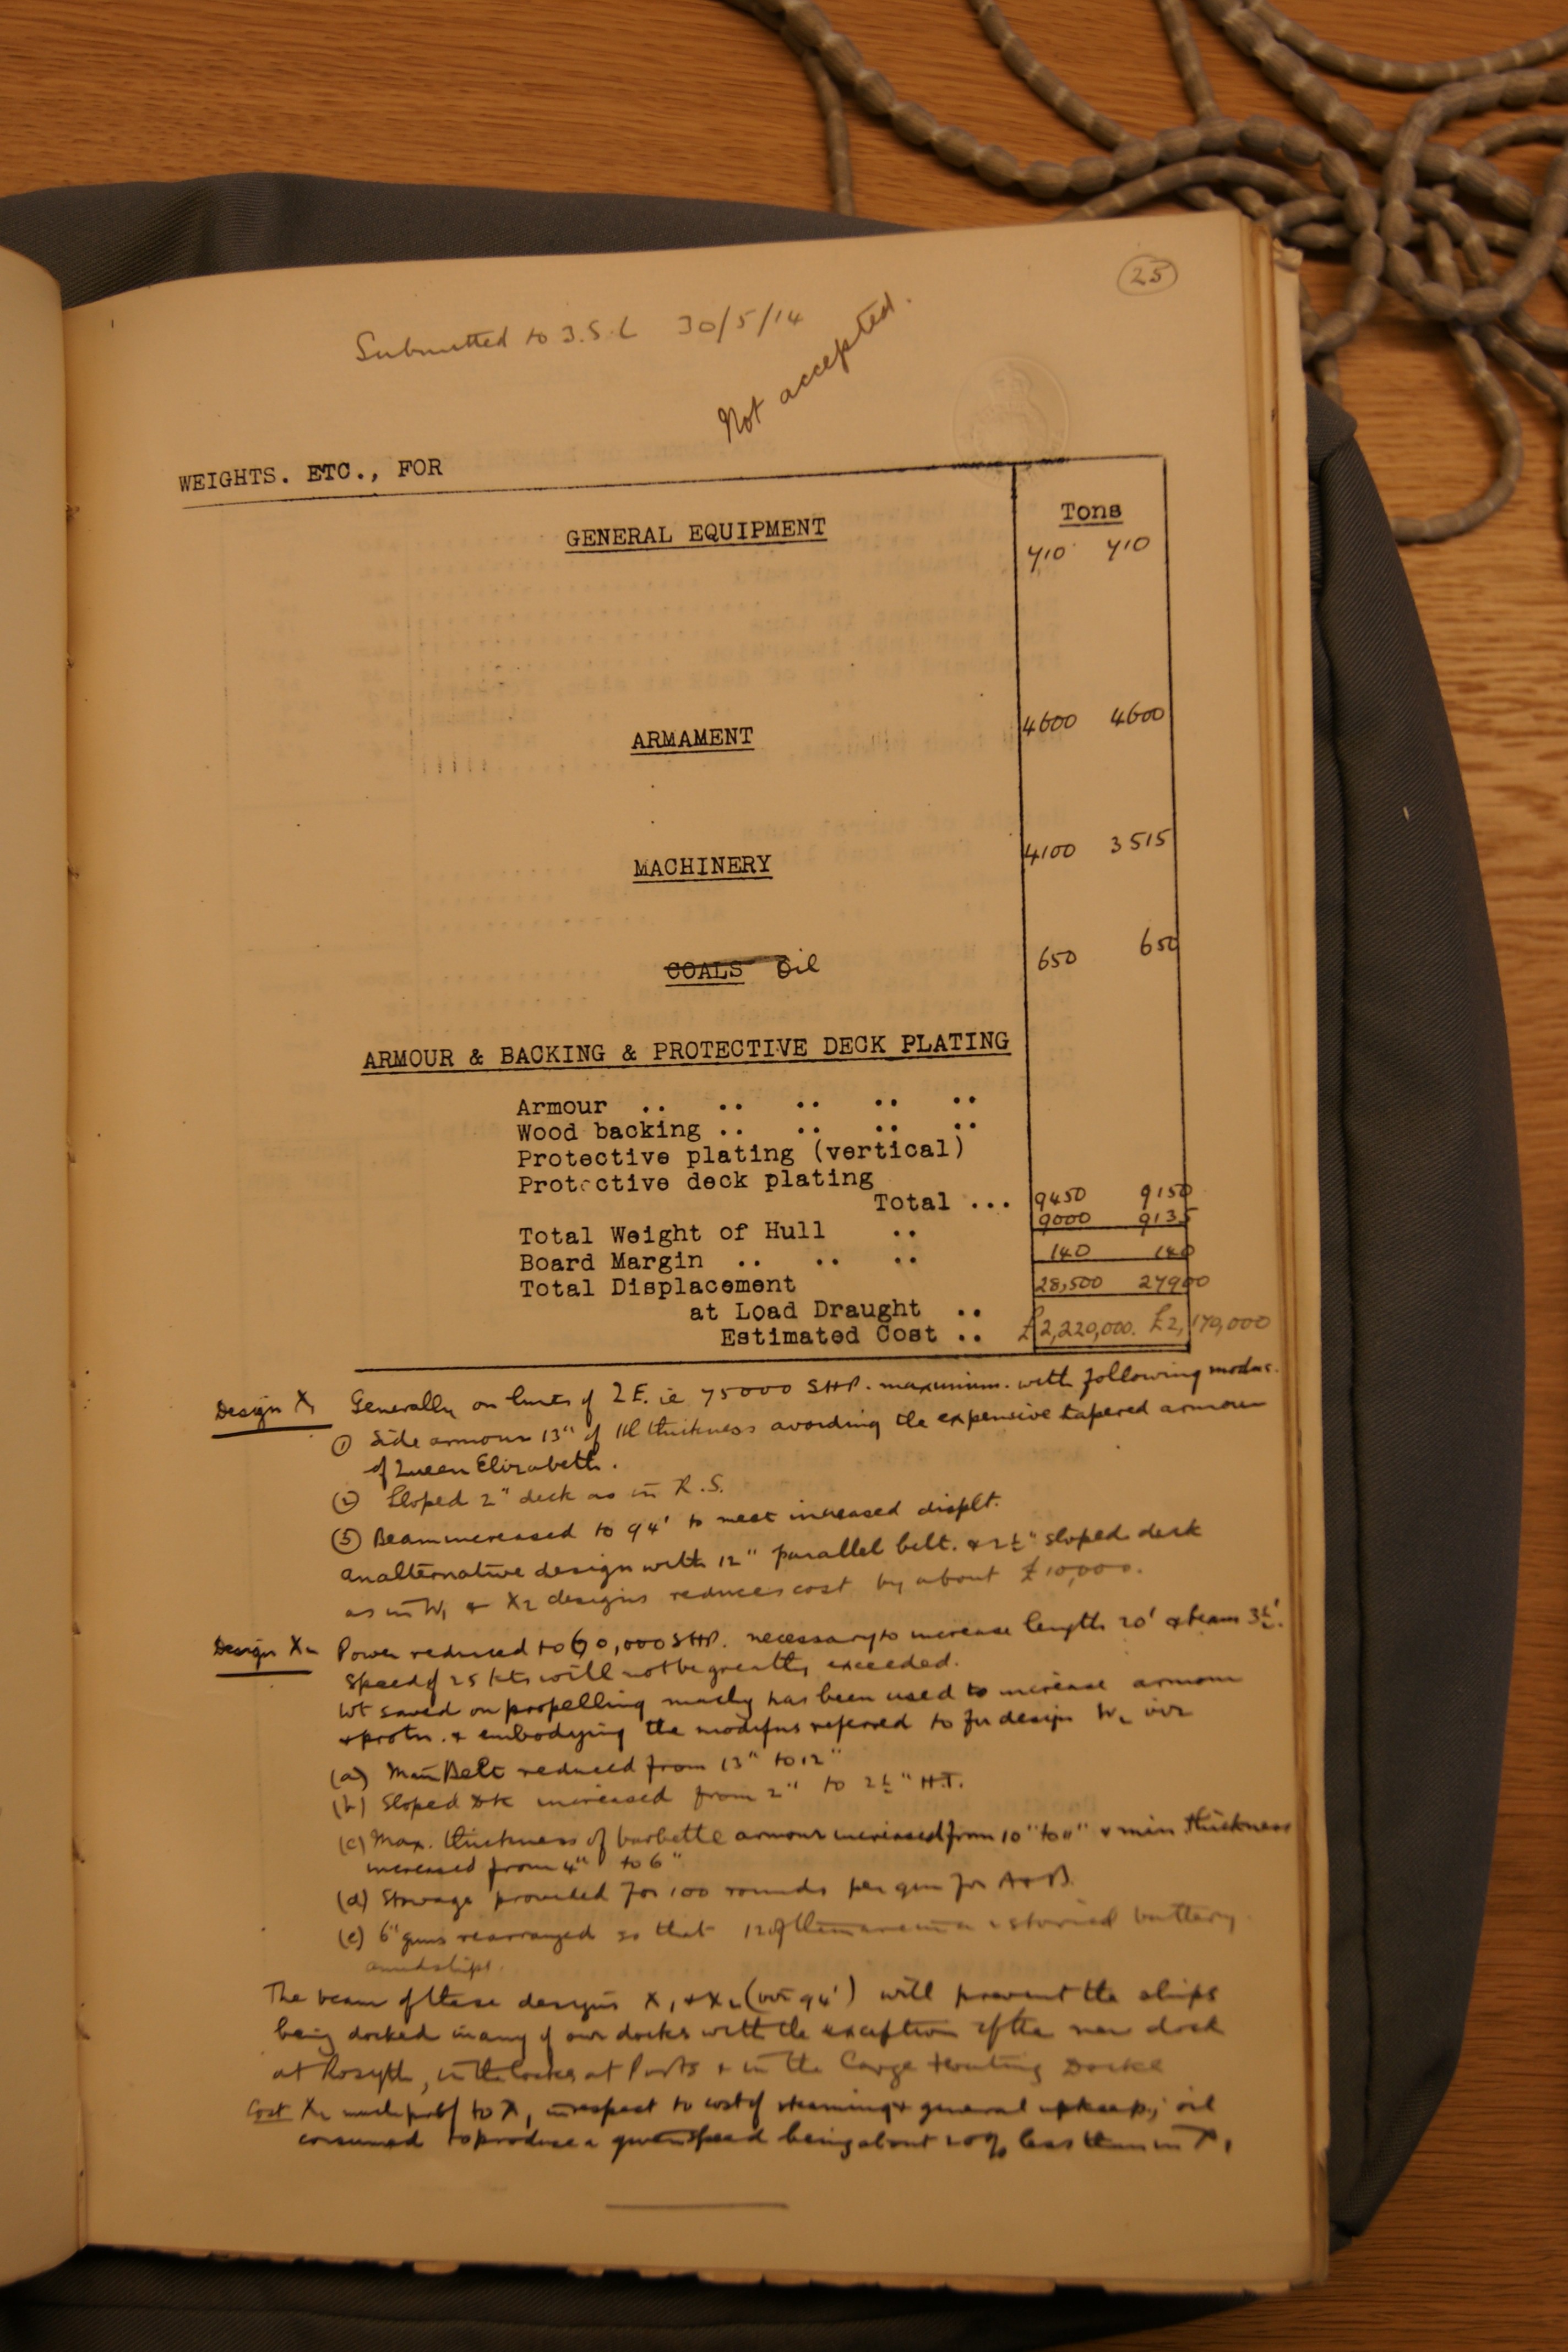 25
Submitted to 3.S.L 30/5/14
Not accepted.
WEIGHTS. ETC., FOR
Tons
GENERAL EQUIPMENT 710 710
ARMAMENT 4600 4600
MACHINERY 4100 3515
COALS Oil 650 650
ARMOUR & BACKING & PROTECTIVE DECK PLATING
Armour .. .. .. .. ..
Wood backing .. .. .. ..
Protective plating (vertical)
Protective deck plating
Total ... 9450 9150
Total Weight of Hull .. 9000 9135
Board Margin .. .. .. 140 140
Total Displacement 28,500 27900
at Load Draught ..
Estimated Cost .. £2,220,000. £2,170,000
Design X1 Generally on lines of Q E. ie 75000 SHP. maximum. with following modns.
① Side armour 13" of thickness avoiding the expensive tapered armour
of Queen Elizabeth.
② Sloped 2" deck as in R.S.
③ Beam increased to 94' to meet increased displt.
an alternative design with 12" parallel belt. & 2½" sloped deck
as in W1 & X2 designs reduces cost by about £10,000.
Design X2 Power reduced to 60,000 SHP. necessary to increase length 20' & beam 3½'.
Speed of 25 kts will not be greatly exceeded.
Wt saved on propelling machy has been used to increase armour
& protn. & embodying the modifns referred to for design W2
(a) Main Belt reduced from 13" to 12"
(b) Sloped Dk increased from 2" to 2½" H.T.
(c) Max. thickness of barbette armour increased from 10" to 11" & min thickness
increased from 4" to 6"
(d) Stowage provided for 100 rounds per gun for A & B.
(e) 6" guns rearranged so that 12 of them are in a 2 storied battery
amidships.
The beam of these designs X1 & X2 (over 94') will prevent the ships
being docked in any of our docks with the exception of the new dock
at Rosyth, in the locks at Ports & in the Large Floating Docks
Cost X2 much prefb to X1 in respect to cost of steaming & general upkeep; oil
consumed to produce a given speed being about 20% less than in X1